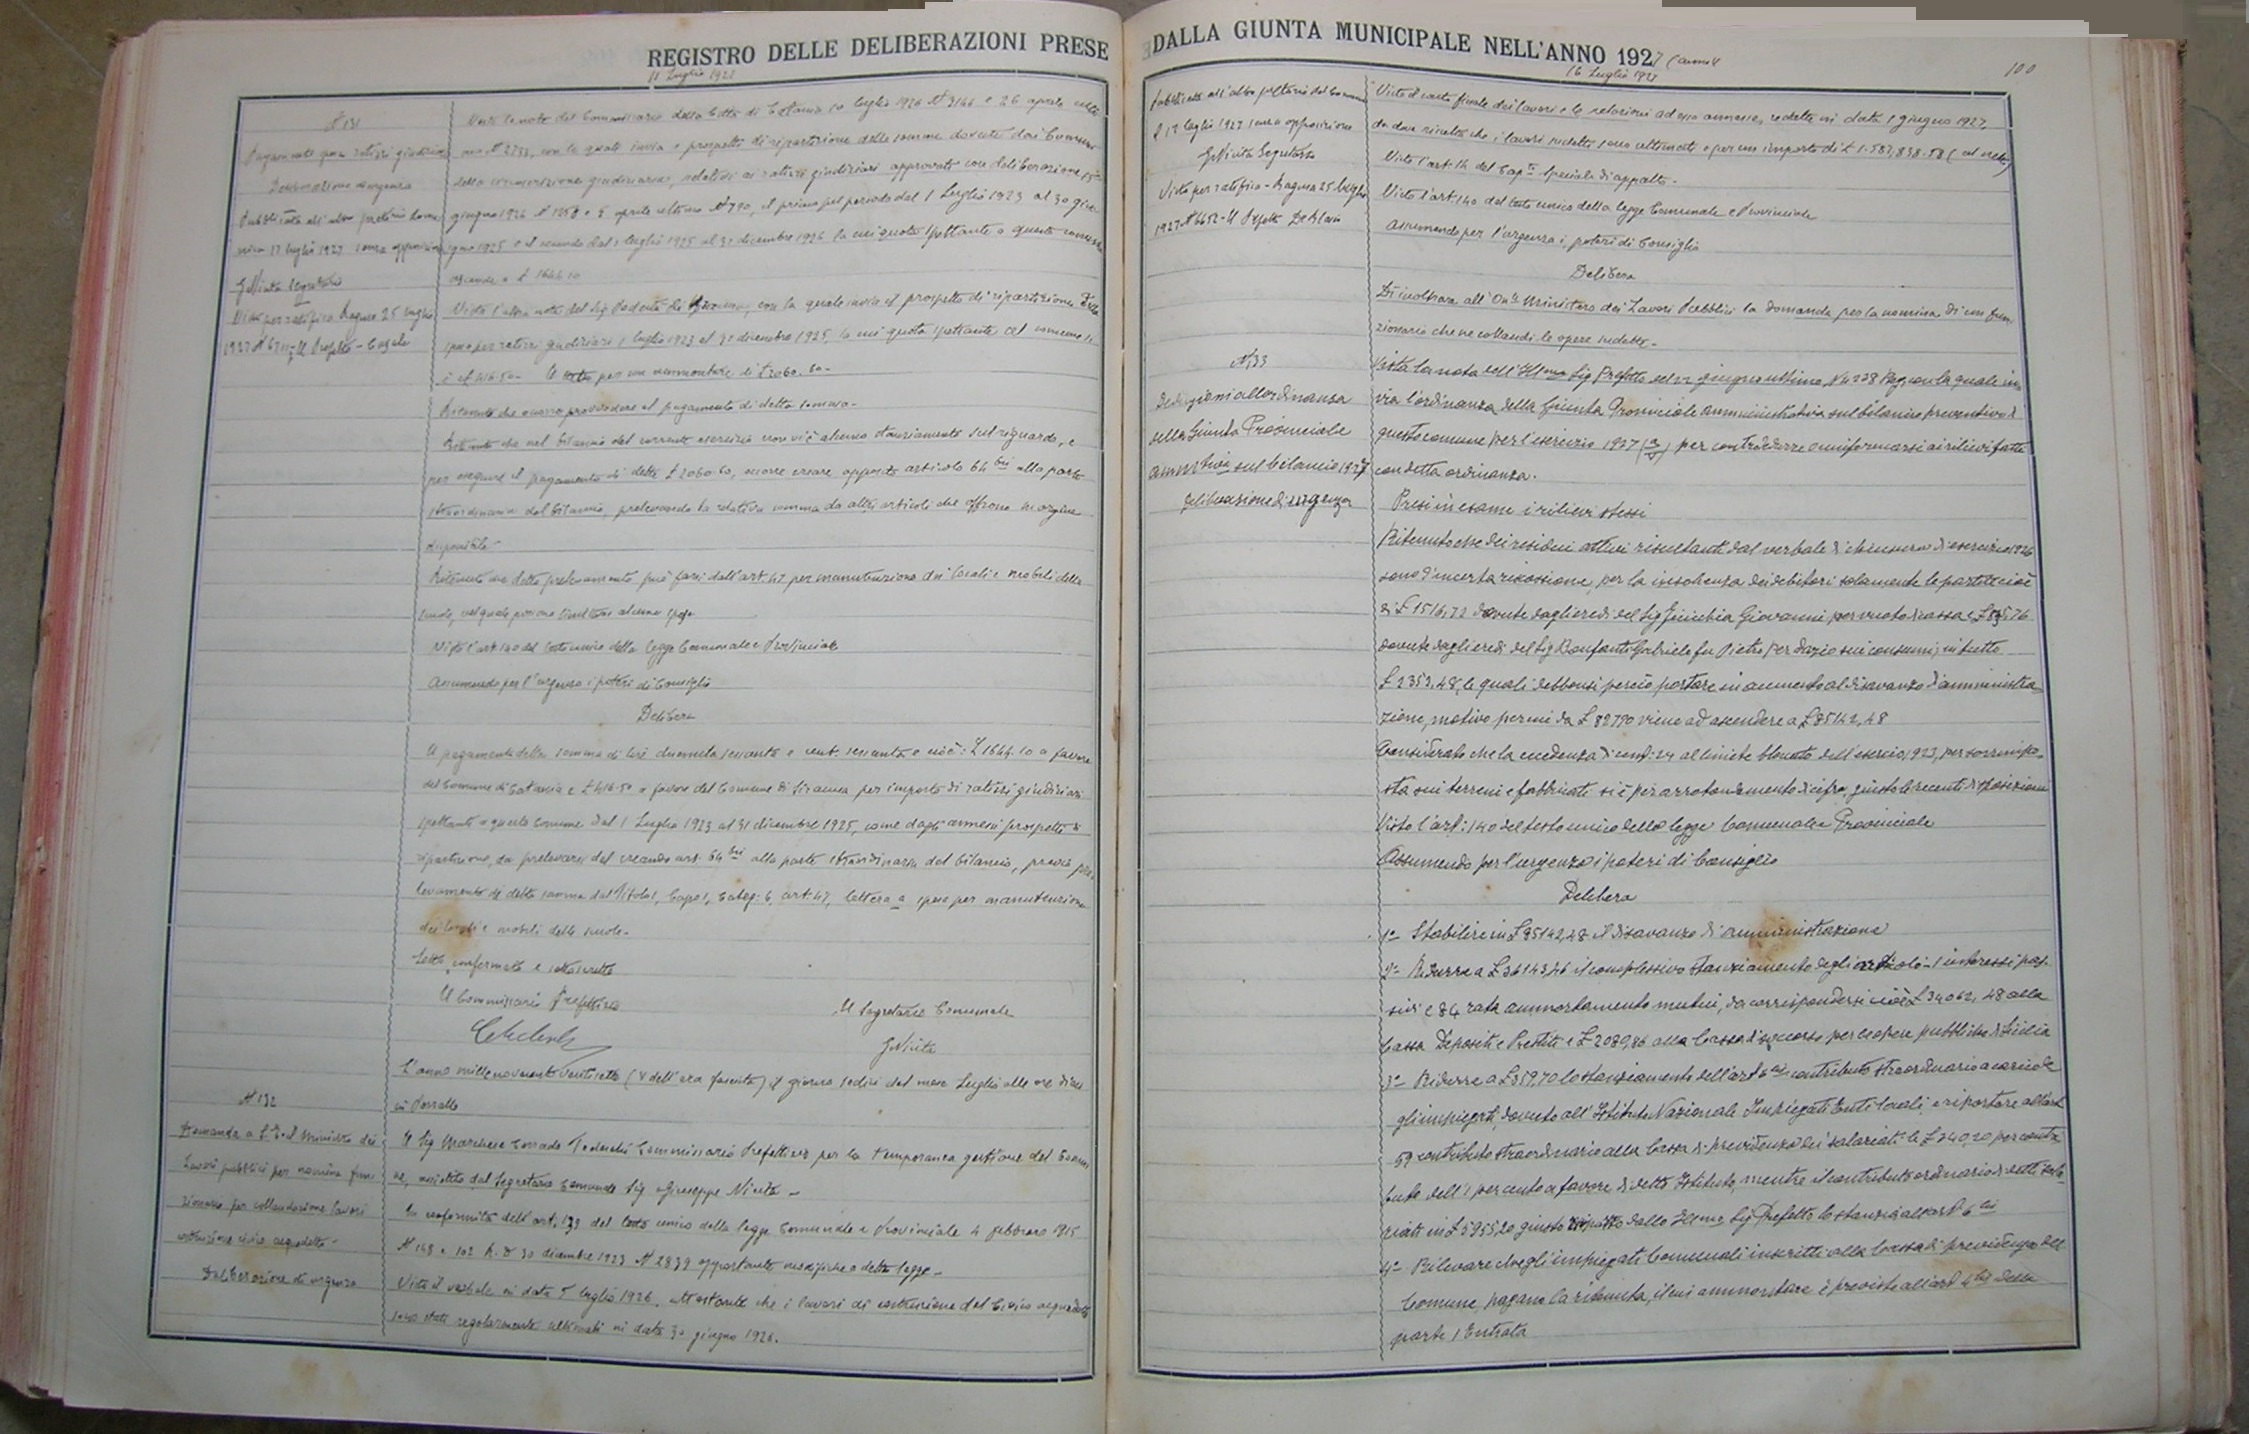 REGISTRO DELLE DELIBERAZIONI PRESE
11 Luglio 1927
N 131
Pagamento quota ratizzi giudiziari
Deliberazione di urgenza
Pubblicata all'albo pretorio
17 luglio 1927 senza opposizioni
G Nicita Segretario
Visto per ratifica Ragusa 25 luglio
1927 Il Prefetto
Vista la nota del Commissario della Città di Catania 10 luglio 1926 N 3166 e 26 aprile
N 2733, con le quali invia prospetto di ripartizione delle somme dovute dai Comuni
della circoscrizione giudiziaria, relativi ai ratizzi giudiziari approvati con deliberazione 15
giugno 1926 e 5 aprile ultimo N 790, il primo pel periodo dal 1 Luglio 1923 al 30 giu
gno 1925 e il secondo dal 1 luglio 1925 al 31 dicembre 1926 la cui quota spettante a questo comune
ascende a £ 1644.10
Vista l'altra nota del Sig Podestà di Siracusa, con la quale invia il prospetto di ripartizione
spese per ratizzi giudiziari 1 luglio 1923 al 31 dicembre 1925, la cui quota spettante al comune
è £ 416.50 - Il tutto per un ammontare di £ 2060.60 -
Ritenuto che occorre provvedere al pagamento di detta somma -
Ritenuto che nel bilancio del corrente esercizio non vi è alcuno stanziamento sul riguardo, e
per eseguire il pagamento di dette £ 2060.60, occorre creare apposito articolo 64 bis alla parte
straordinaria del bilancio, prelevando la relativa somma da altri articoli che offrono margine
disponibile -
Ritenuto che detto prelevamento può farsi dall'art. 47 per manutenzione dei locali e mobili delle
scuole, nel quale
Visto l'art 140 del testo unico della legge Comunale e Provinciale
Assumendo per l'urgenza i poteri di Consiglio
Delibera
Il pagamento della somma di lire duemila sessanta e cent. sessanta e cioè: £ 1644.10 a favore
del Comune di Catania e £ 416.50 a favore del Comune di Siracusa, per importo di ratizzi giudiziari
spettanti a questo Comune dal 1 Luglio 1923 al 31 dicembre 1925, come dagli annessi prospetti di
ripartizione, da prelevarsi dal creando art. 64 bis alla parte straordinaria del bilancio, previo pre
levamento di detta somma dal Titolo 1, Capo 1, Categ. 6, art. 47, lettera a spese per manutenzione
dei locali e mobili delle scuole -
Letto, confermato e sottoscritto
Il Commissario Prefettizio
Il Segretario Comunale
G Nicita
L'anno millenovecento ventisette (V dell'era fascista) il giorno sedici del mese Luglio alle ore dieci
N 132
Domanda a S. E. il Ministro dei
Lavori pubblici per nomina fun
zionario per collaudazione lavori
costruzione civico acquedotto -
Deliberazione di urgenza
Il Sig Marchese Corrado Tedeschi Commissario Prefettizio per la temporanea gestione del Comu
ne, assistito dal Segretario Comunale Sig Giuseppe Nicita -
In conformità dell'art. 139 del testo unico della legge Comunale e Provinciale 4 febbraio 1915
N 148 e 102 R. D 30 dicembre 1923 N 2839 apportante modifiche a detta legge -
Visto il verbale in data 5 luglio 1926, attestante che i lavori di costruzione del Civico acquedotto
sono stati regolarmente ultimati in data 30 giugno 1926.
DALLA GIUNTA MUNICIPALE NELL'ANNO 1927 (anno V
16 Luglio 1927
100
Pubblicata all'albo pretorio del Comune
il 17 luglio 1927 senza opposizioni
G Nicita Segretario
Visto per ratifica - Ragusa 25 luglio
1927 N 6652 - Il Prefetto De Blasio
Visto il conto finale dei lavori e la relazione ad esso annessa, redatta in data 1 giugno 1927,
da dove risulta che i lavori suddetti sono ultimati e per un importo di £ 1.587,838.58 (al netto)
Visto l'art. 14 del Cap.to Speciale di appalto -
Visto l'art. 140 del testo unico della legge Comunale e Provinciale
Assumendo per l'urgenza i poteri di Consiglio
Delibera
Di inoltrare all'On.le Ministero dei Lavori Pubblici la domanda per la nomina di un fun
zionario che ne collaudi le opere suddette -
N 133
Deduzioni all'ordinanza
della Giunta Provinciale
Amm.tiva sul bilancio 1927
Deliberazione di urgenza
Vista la nota dell'Ill.mo Sig Prefetto del 22 giugno ultimo N 4238 Rag, con la quale in
via l'ordinanza della Giunta Provinciale Amministrativa sul bilancio preventivo di
questo comune per l'esercizio 1927 per controdedurre o uniformarsi ai rilievi fatti
con detta ordinanza.
Presi in esame i rilievi stessi
Ritenuto che dei residui attivi risultanti dal verbale di chiusura di esercizio 1926
sono d'incerta riscossione, per la insolvenza dei debitori solamente le partite cioè
di £ 1516,72 dovute dagli eredi del Sig Giovanni per vuoto di cassa e
dovute dagli eredi del Sig Bonfanti Gabriele fu Pietro per dazio sui consumi, in tutto
£ 2352,48, le quali debbonsi perciò portare in aumento al disavanzo d'amministra
zione, motivo per cui da £ 82790 viene ad ascendere a £ 85142,48
Considerato che la eccedenza di cent. 24 al limite bloccato dell'esercizio 1923, per sovrimpo
sta sui terreni e fabbricati si è per arrotondamento di cifra, giusto le recenti disposizioni
Visto l'art: 140 del testo unico della legge Comunale e Provinciale
Assumendo per l'urgenza i poteri di Consiglio
Delibera
1º Stabilire in £ 85142,48 il disavanzo di amministrazione
2º Ridurre a £ 36143,46 il complessivo stanziamento degli articoli 1 interessi pas
sivi e 84 rata ammortamento mutui, da corrispondersi cioè £ 34062,48 alla
Cassa Depositi e Prestiti e £ 2089,86 alla Cassa di soccorso per le opere pubbliche di Sicilia
3º Ridurre a £ 359,70 lo stanziamento dell'art 6 bis contributo straordinario a carico de
gli impiegati, dovuto all'Istituto Nazionale Impiegati Enti Locali e riportare all'art
59 contributo straordinario alla Cassa di previdenza dei salariati le £ 240,20 per contri
buto dell'1 per cento a favore di detto Istituto, mentre il contributo ordinario di detti sala
riati in £ 5955,20 giusto disposto dallo Ill.mo Sig Prefetto lo stanzia all'art 6 bis
4º Rilevare che gli impiegati Comunali inscritti alla Cassa di previdenza del
Comune, pagano la ritenuta, il cui ammontare è previsto all'art 4 bis della
parte 1 Entrata